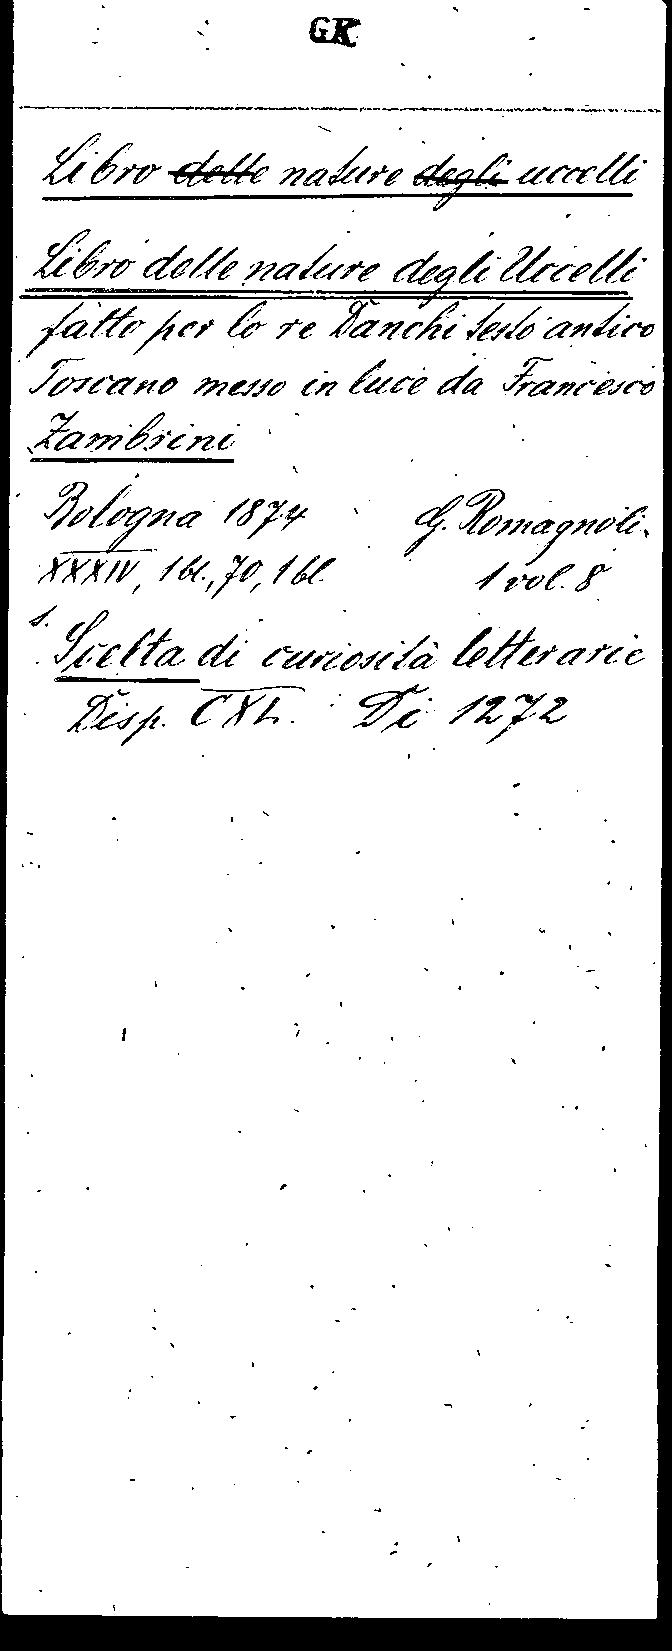 GK
Libro delle nature degli uccelli
Libro delle nature degli Uccelli
fatto per lo re Danchi testo antico
Toscano messo in luce da Francesco
Zambrini
Bologna 1874 G. Romagnoli.
XXXIV, 1 bl., 70, 1 bl. 1 vol. 8
s. Scelta di curiosità letterarie
Disp. CXL. Di 1272